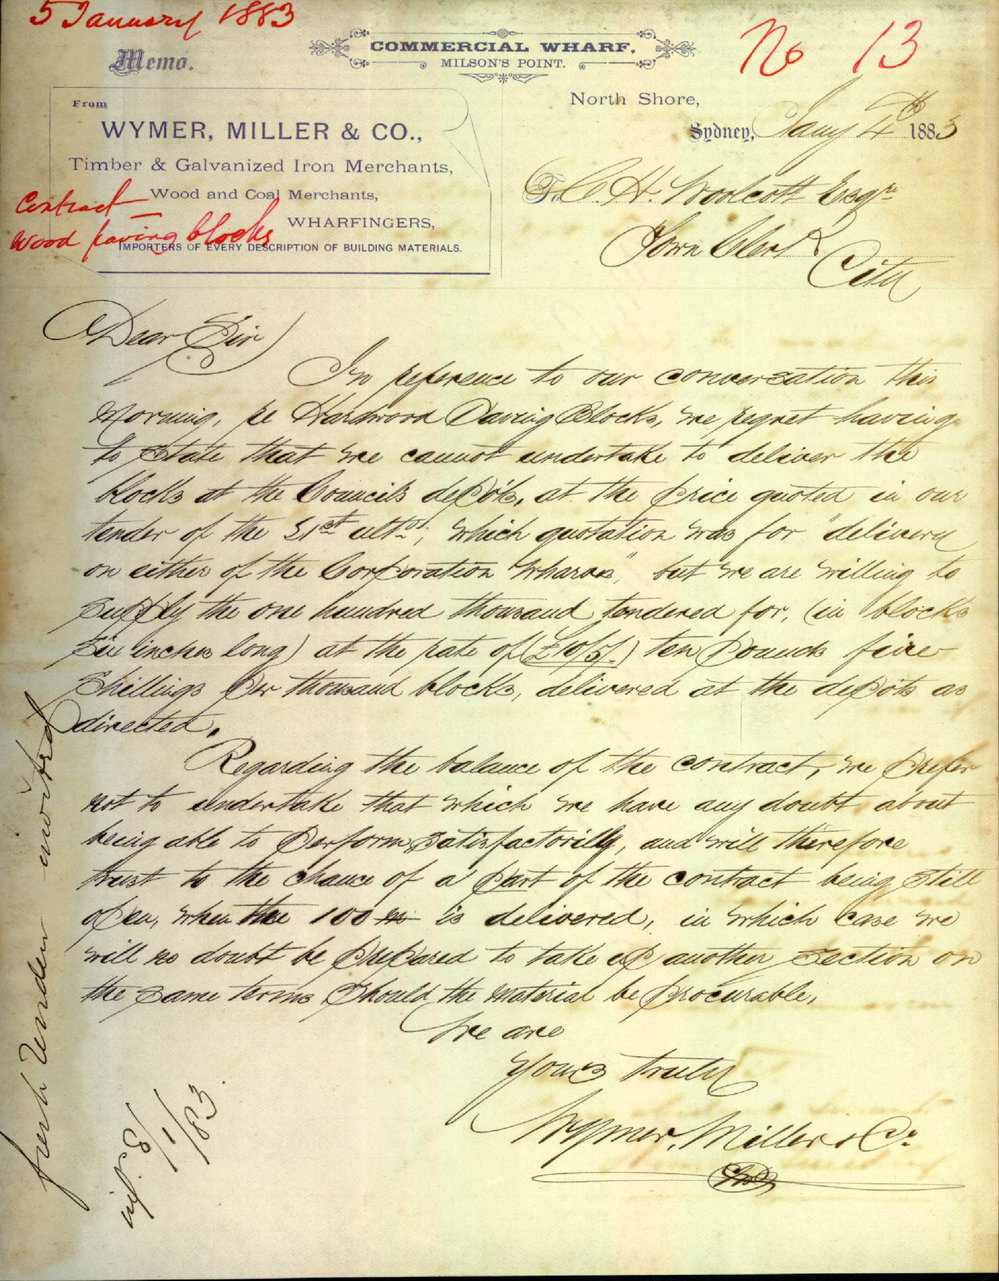 5 January 1883
No 13
COMMERCIAL WHARF,
MILSON'S POINT.
Memo.
North Shore,
Sydney, Jany 4th 1883
From
WYMER, MILLER & CO.,
Timber & Galvanized Iron Merchants,
Wood and Coal Merchants,
WHARFINGERS,
IMPORTERS OF EVERY DESCRIPTION OF BUILDING MATERIALS.
Contract
Wood paving blocks
To C. H. Woolcott Esqre
Town Clerk
City
Dear Sir
In reference to our conversation this
morning, re Hardwood Paving Blocks, we regret having
to state that we cannot undertake to deliver the
blocks at the Council's depôts, at the price quoted in our
tender of the 21st ulto; which quotation was for "delivery
on either of the Corporation Wharves", but we are willing to
supply the one hundred thousand tendered for, (in blocks
six inches long) at the rate of (£10/5/.) ten pounds five
shillings per thousand blocks, delivered at the depôts as
directed.
Regarding the balance of the contract, we prefer
not to undertake that which we have any doubt about
being able to perform satisfactorily, and will therefore
trust to the chance of a part of the contract being still
open, when the 100 m is delivered, in which case we
will no doubt be prepared to take up another section on
the same terms should the material be procurable.
We are
Yours truly
Wymer, Miller & Co.
fresh Tenders invited
8/1/83.